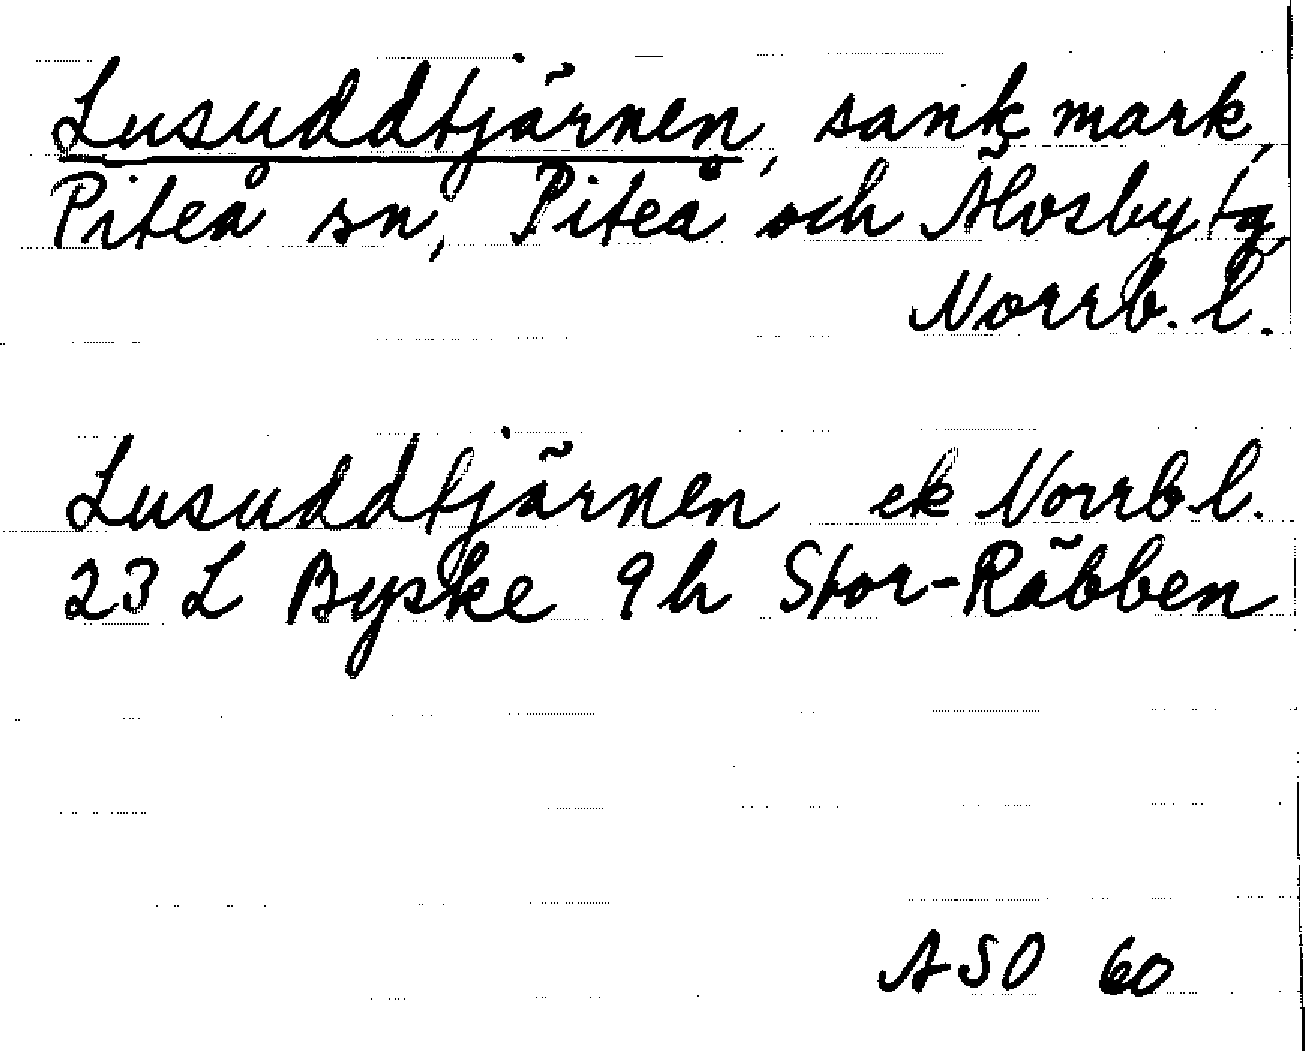 Lusuddtjärnen, sank mark,
Piteå sn, Piteå och Älvsby tg,
Norrb. l.
Lusuddtjärnen ek Norrb l.
23 L Byske 9h Stor-Räbben
ASO 60